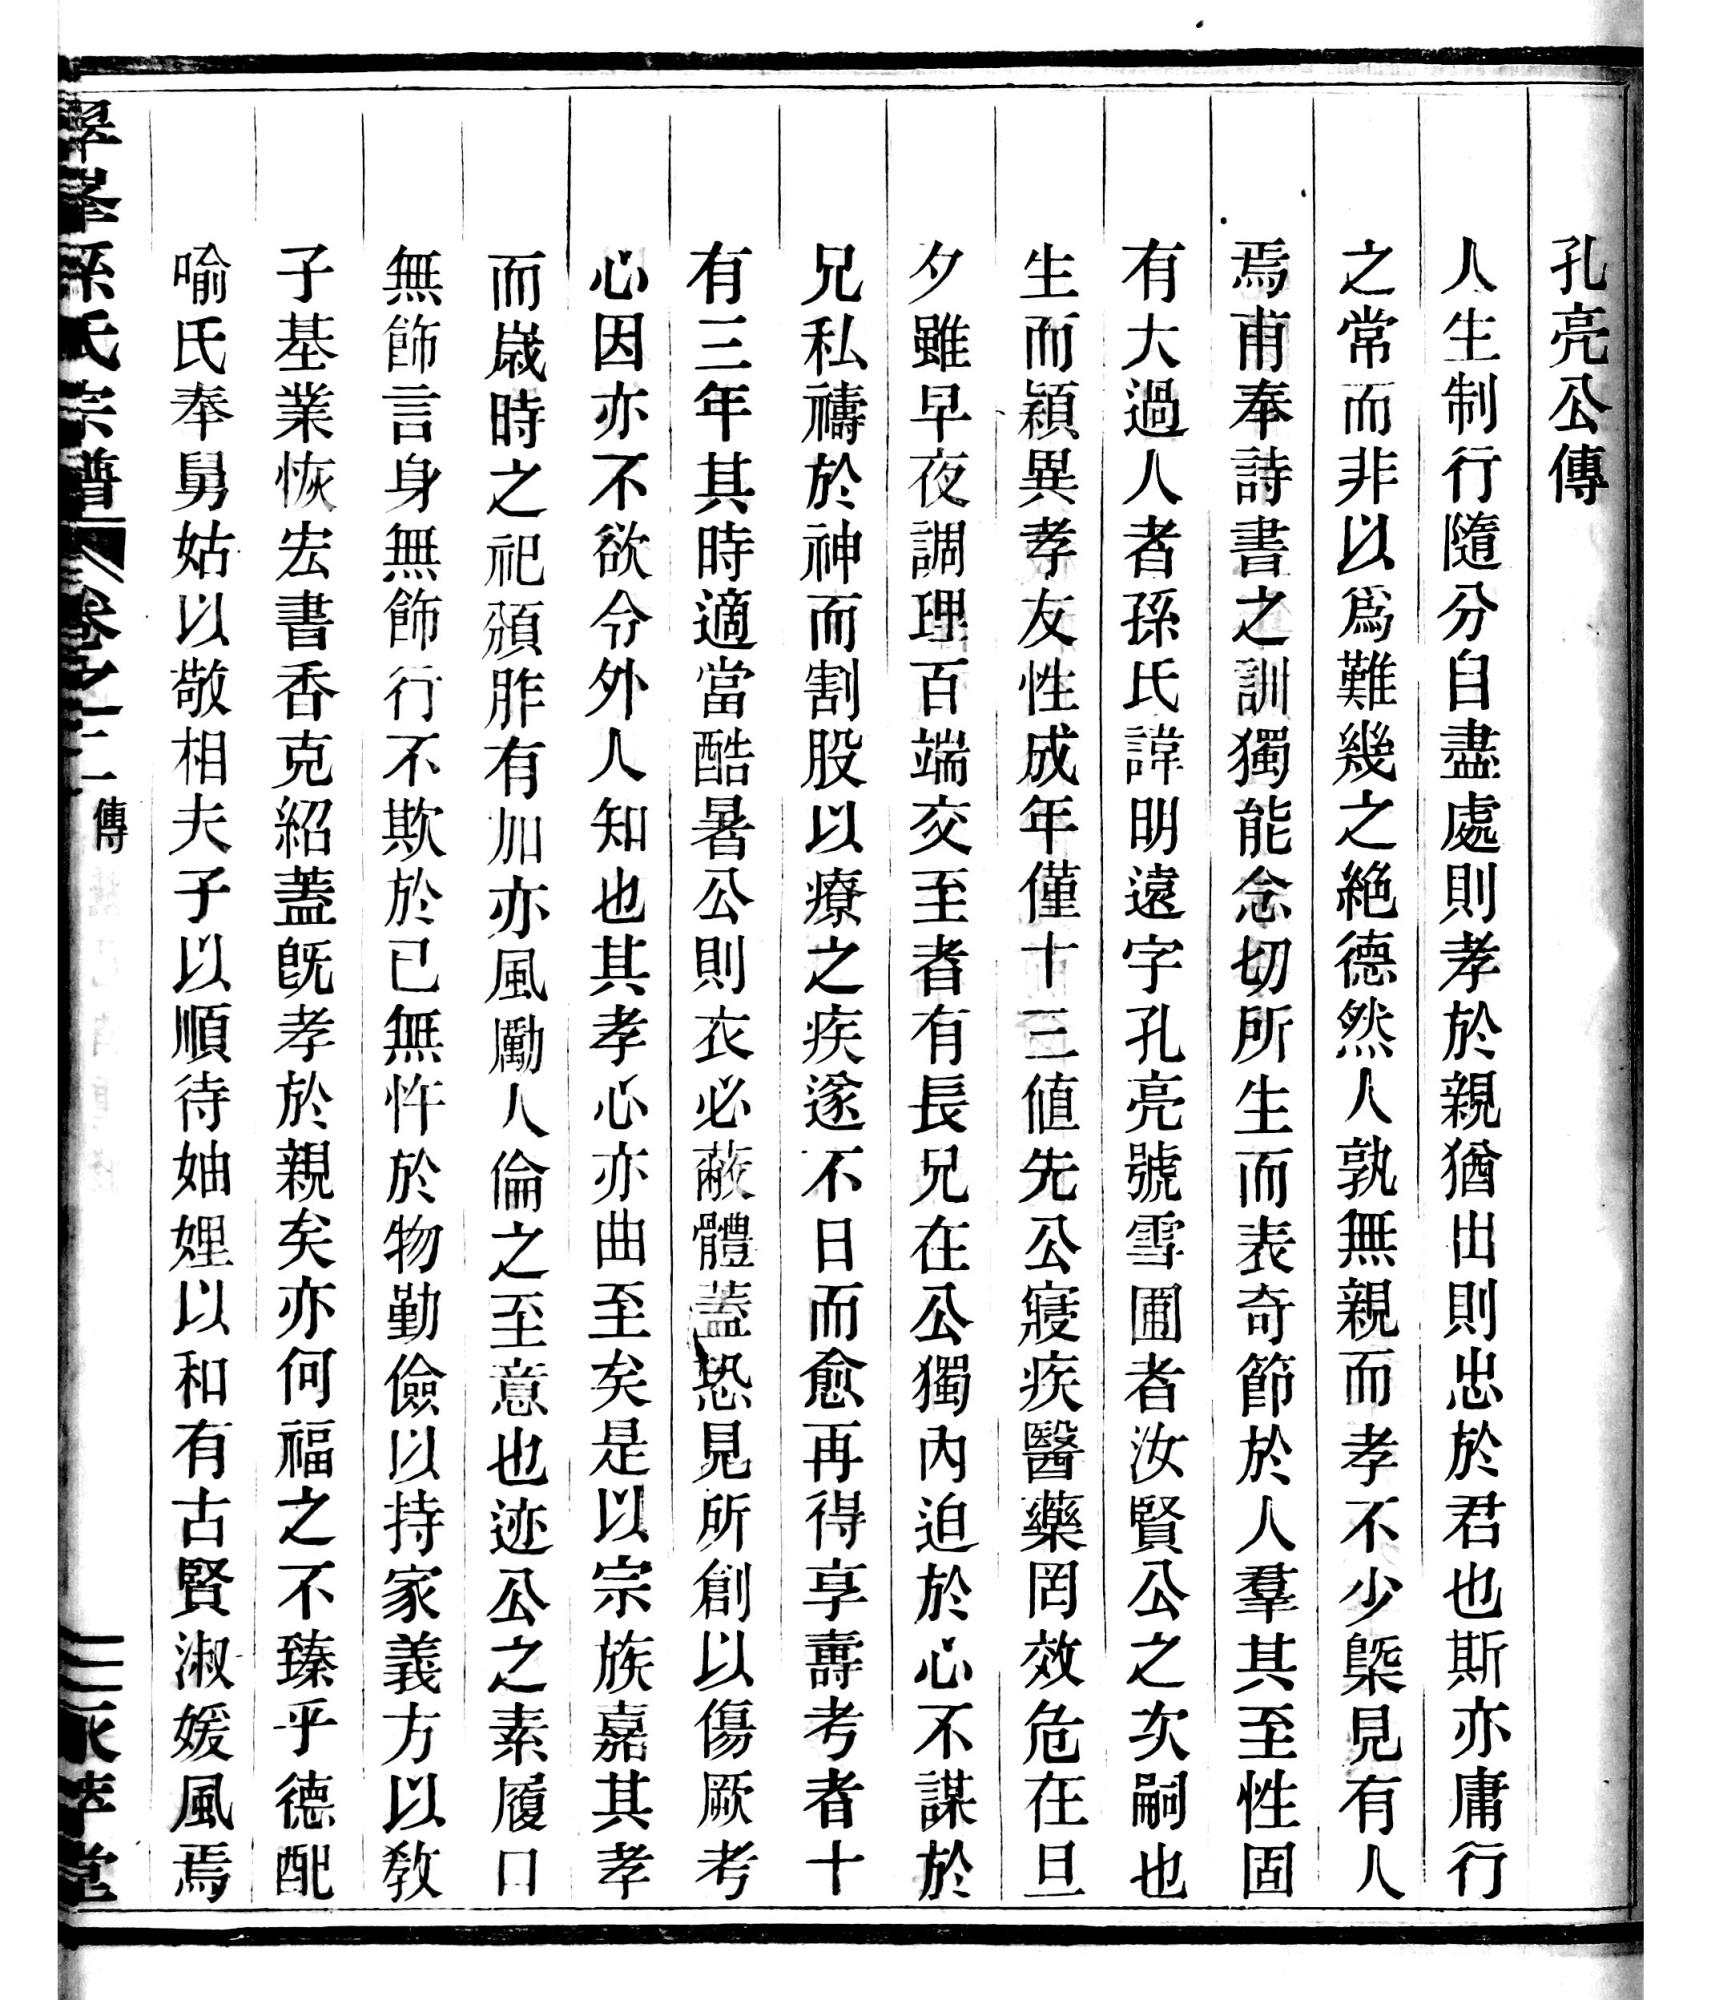 孔亮公傳
人生制行隨分自盡處則孝於親猶出則忠於君也斯亦庸行
之常而非以爲難幾之絶德然人孰無親而孝不少槩見有人
焉甫奉詩書之訓獨能念切所生而表奇節於人羣其至性固
有大過人者孫氏諱明遠字孔亮號雪圃者汝賢公之次嗣也
生而穎異孝友性成年僅十三値先公寢疾醫藥罔效危在旦
夕雖早夜調理百端交至者有長兄在公獨內迫於心不謀於
兄私禱於神而割股以療之疾遂不日而愈再得享壽考者十
有三年其時適當酷暑公則衣必蔽體蓋恐見所創以傷厥考
心因亦不欲令外人知也其孝心亦曲至矣是以宗族嘉其孝
而歲時之祀頒胙有加亦風勵人倫之至意也迹公之素履口
無飾言身無飾行不欺於已無忤於物勤儉以持家義方以敎
子基業恢宏書香克紹蓋旣孝於親矣亦何福之不臻乎德配
喻氏奉舅姑以敬相夫子以順待妯娌以和有古賢淑媛風焉
孫氏宗譜 卷之二 傳
萃堂